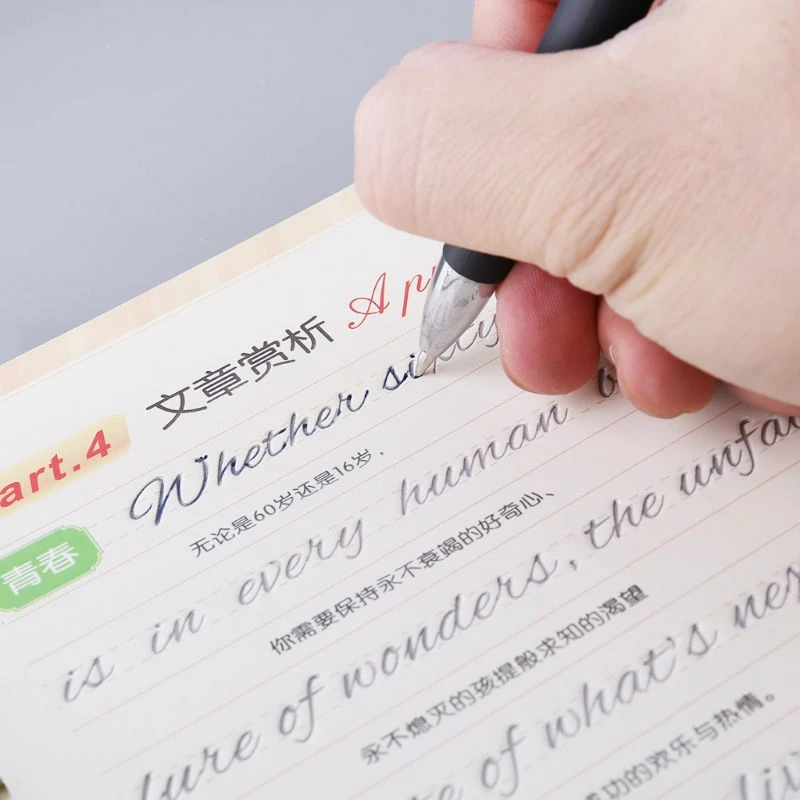 art.4 文章赏析 A
青春 Whether sixty
无论是60岁还是16岁，
is in every human
你需要保持永不衰竭的好奇心、
lure of wonders, the
永不熄灭的孩提般求知的渴望
of what's
成功的欢乐与热情。